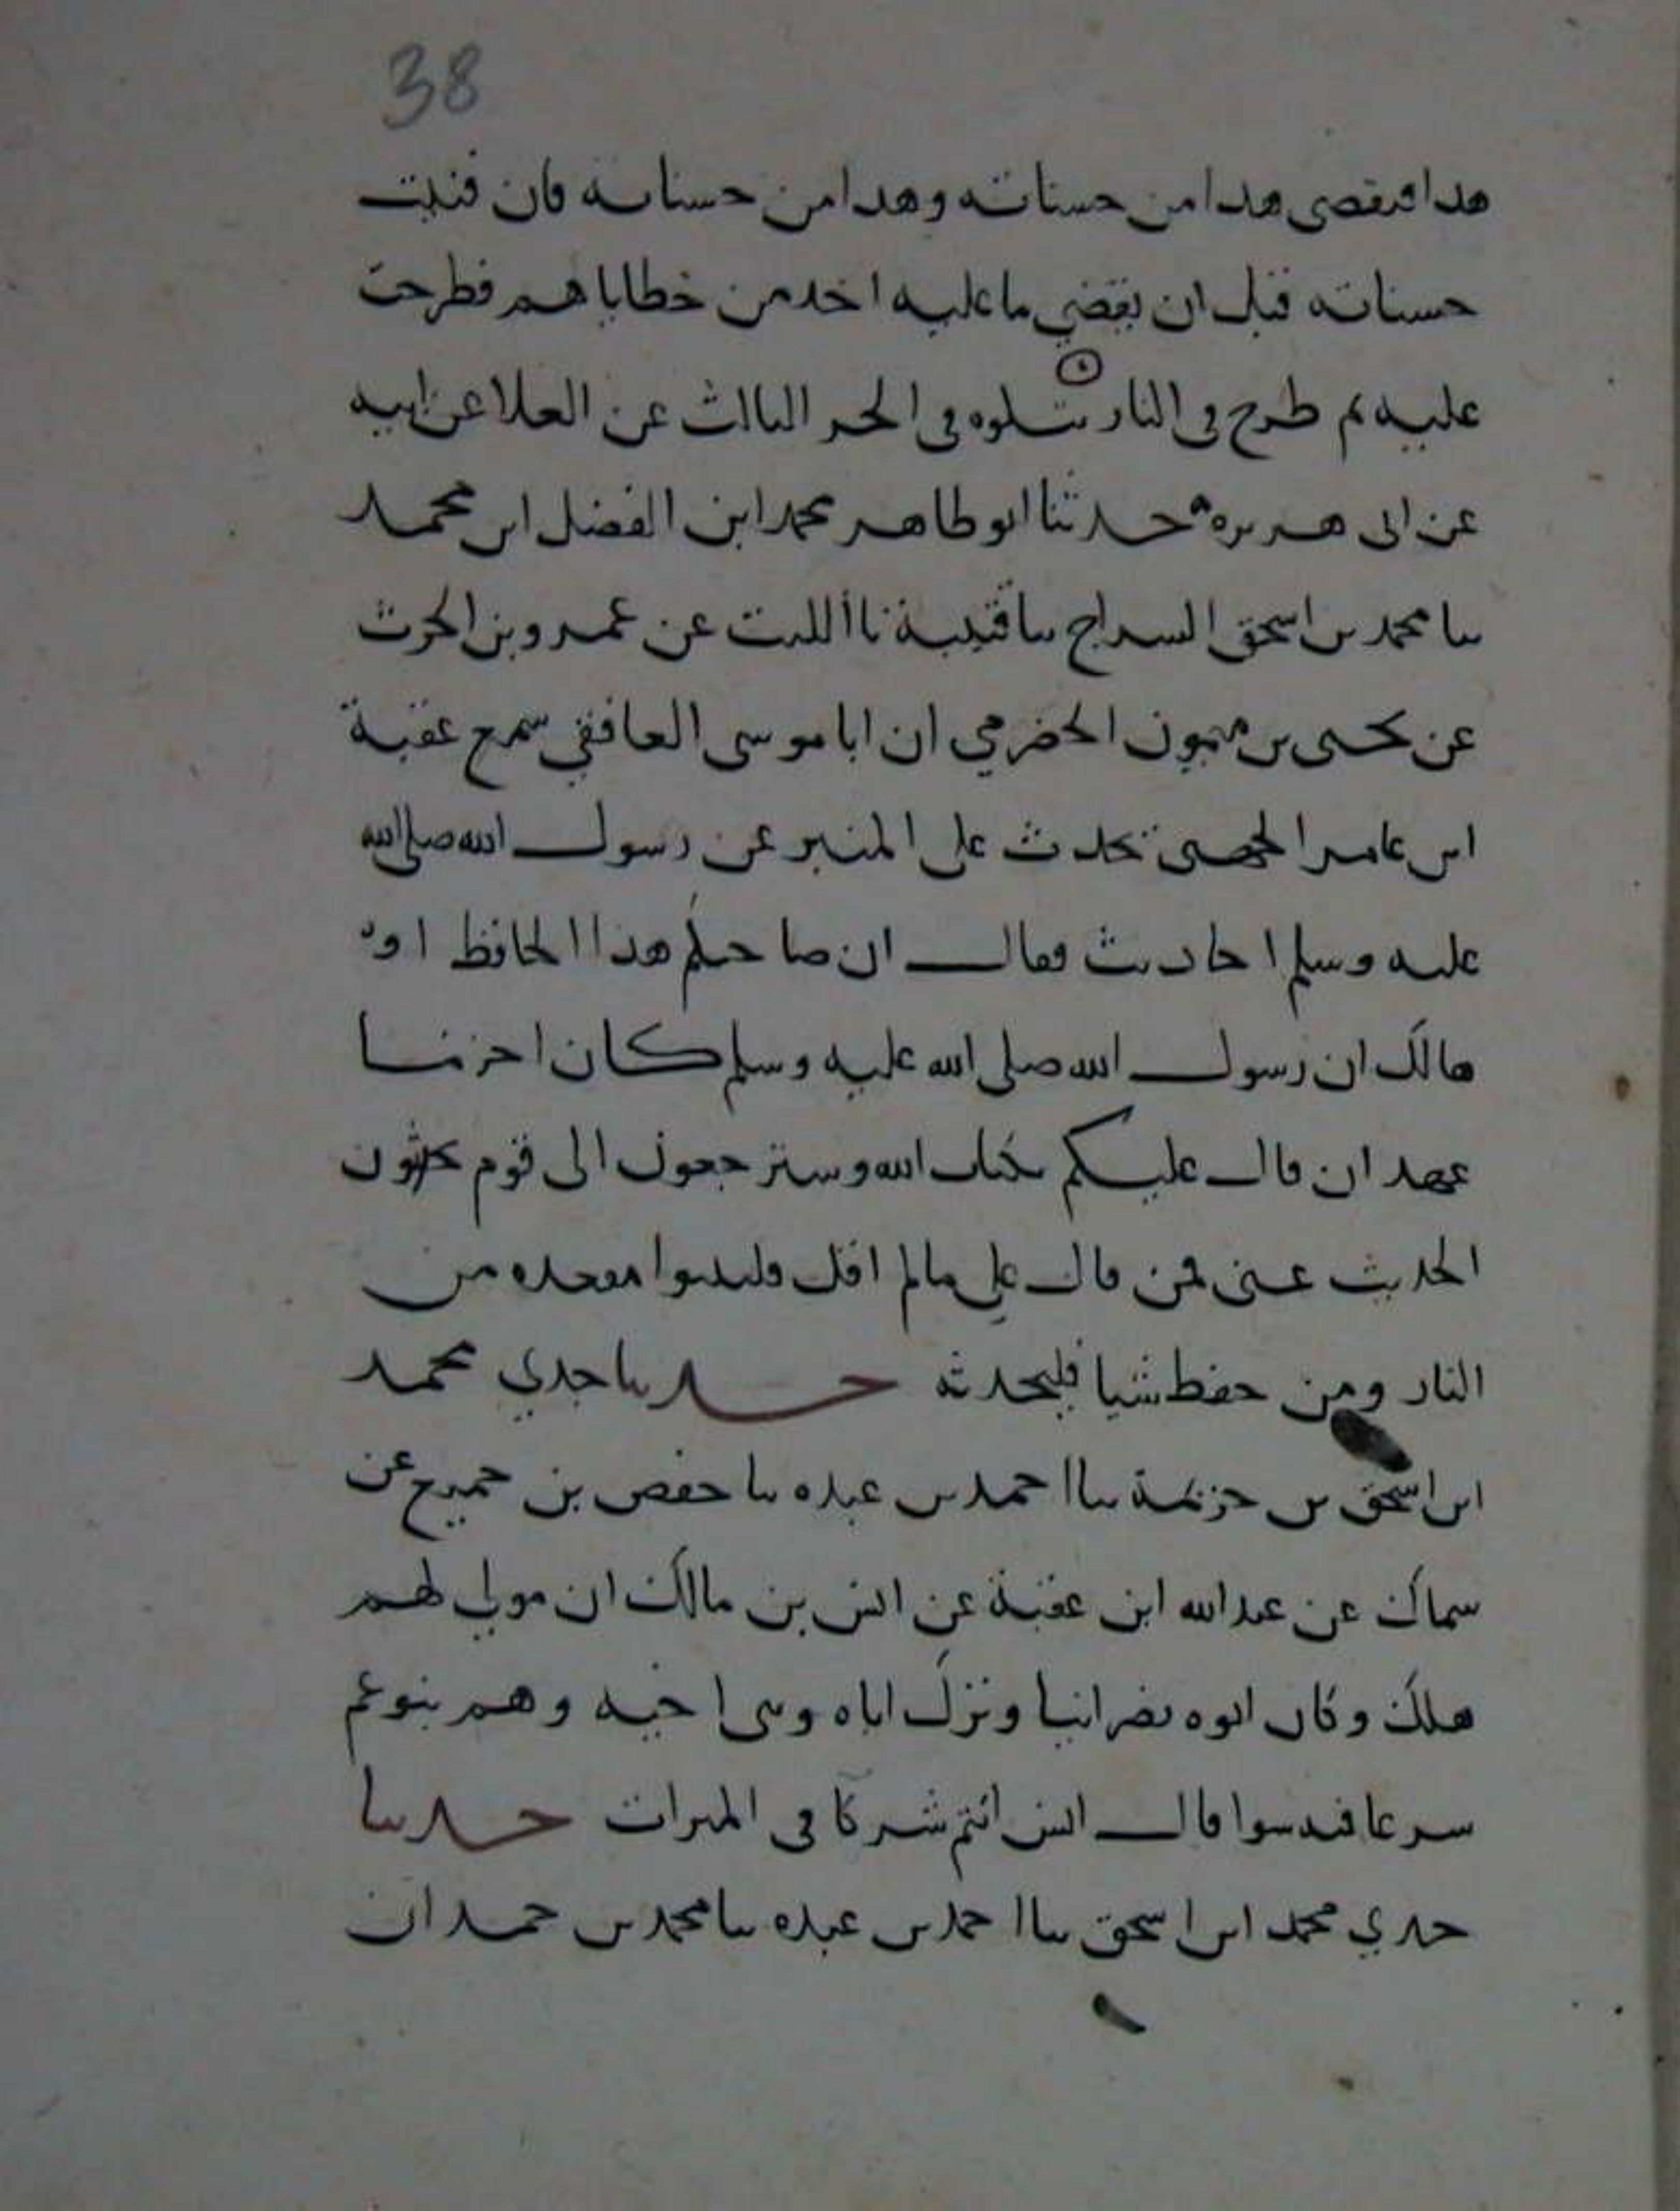 38
هدا فيقصى هدا من حسناته وهدا من حسناته فان فنيت
حسناته قبل ان يقضي ما عليه اخد من خطاياهم فطرحت
عليه ثم طرح في النار يتلوه في الجز الثالث عن العلا عن ابيه
عن ابى هريره حدثنا ابو طاهر محمد ابن الفضل ابن محمد
ثنا محمد بن اسحق السراج ثنا قتيبة نا الليث عن عمرو بن الحرث
عن يحيى بن ميمون الحضرمي ان ابا موسى الغافقي سمع عقبة
ابن عامر الجهنى يحدث على المنبر عن رسول الله صلى الله
عليه وسلم احاديث فقال ان صاحبكم هذا الحافظ او
هالك ان رسول الله صلى الله عليه وسلم كان اخر ما
عهد ان قال عليكم بكتاب الله وسترجعون الى قوم يحبون
الحديث عنى فمن قال علي ما لم اقل فليتبوا مقعده من
النار ومن حفظ شيا فليحدثه حدثنا جدي محمد
ابن اسحق بن خزيمة ثنا احمد بن عبده ثنا حفص بن جميع عن
سماك عن عبد الله ابن عقبة عن انس بن مالك ان مولي لهم
هلك وكان ابوه نصرانيا وترك اباه وبنى اخيه وهم بنو عم
سرعا قال انس انتم شركا في الميراث حدثنا
جدي محمد ابن اسحق ثنا احمد بن عبده ثنا محمد بن حمدان